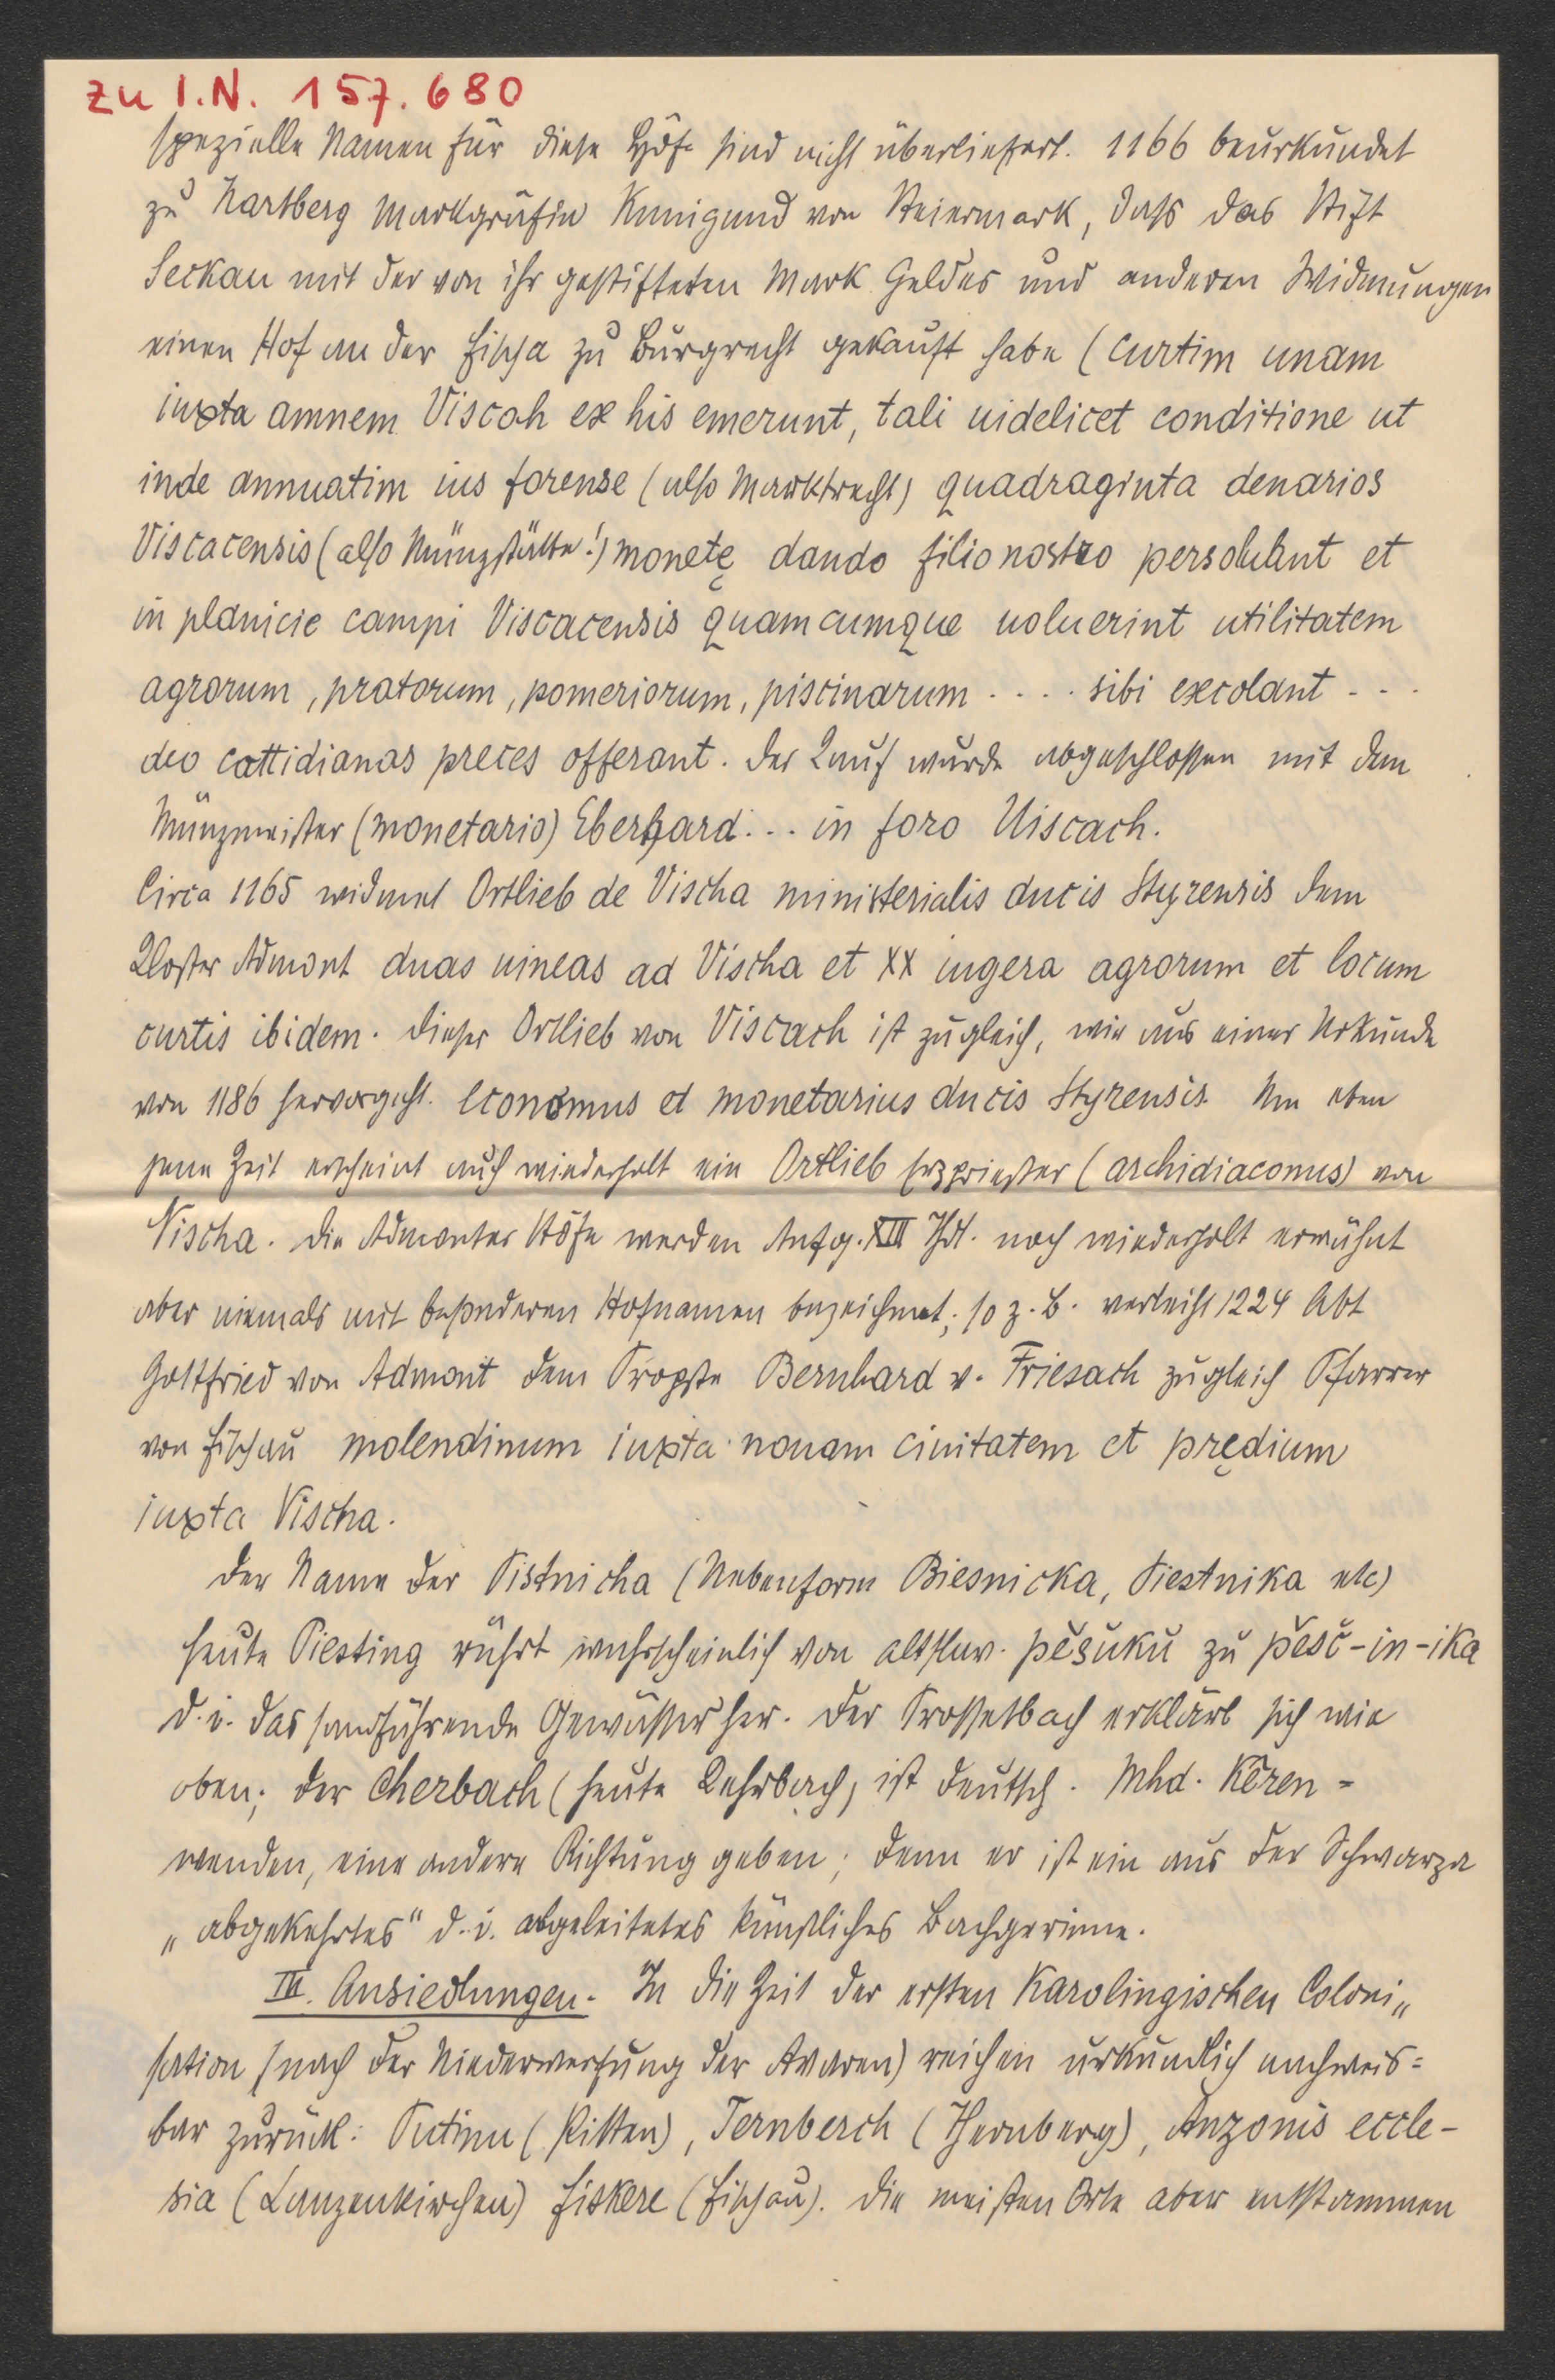 zu I.N. 157.680
spezielle Namen für diese Höfe sind nicht überliefert. 1166 beurkundet
zu Hartberg Markgräfin Kunigund von Steiermark, daß das Stift
Seckau mit der von ihr gestifteten Mark Geldes und anderen Widmungen
einen Hof an der Fischa zu Burgrecht gekauft habe (curtim unam
iuxta amnem Viscah ex his emerunt, tali uidelicet conditione ut
inde annuatim ius forense (also Marktrecht) quadraginta denarios
Viscacensis (also Münzstätte!) monetę dando filio nostro persoluant et
in planicie campi Viscacensis quamcumque uoluerint utilitatem
agrorum, pratorum, pomeriorum, piscinarum .... sibi excolant ...
deo cottidianas preces offerant. Der Kauf wurde abgeschlossen mit dem
Münzmeister (monetario) Eberhard ... in foro Uiscach.
Circa 1165 widmet Ortlieb de Vischa ministerialis ducis Styrensis dem
Kloster Admont duas uineas ad Vischa et XX iugera agrorum et locum
curtis ibidem. Dieser Ortlieb von Viscach ist zugleich, wie aus einer Urkunde
von 1186 hervorgeht. economus et monetarius ducis Styrensis. Um eben
jene Zeit erscheint auch wiederholt ein Ortlieb Erzpriester (archidiaconus) von
Vischa. Die Admonter Höfe werden Anfg. XIII Jhd. noch wiederholt erwähnt
aber niemals mit besonderen Hofnamen bezeichnet; so z. B. verleiht 1224 Abt
Gottfried von Admont dem Propste Bernhard v. Friesach zugleich Pfarrer
von Fischau molendinum iuxta nouam ciuitatem et prędium
iuxta Vischa.
Der Name der Pistnicha (Nebenform Biesnicka, Piestnika etc)
heute Piesting rührt wahrscheinlich von altslaw. pěsuku zu pěsč-in-ika
d. i. das sandführende Gewässer her. Der Prossetbach erklärt sich wie
oben; der Cherbach (heute Kehrbach) ist deutsch. Mhd. Kēren =
wenden, eine andere Richtung geben; denn er ist ein aus der Schwarza
„abgekehrtes“ d. i. abgeleitetes künstliches Bachgerinne.
III. Ansiedlungen. In die Zeit der ersten Karolingischen Coloni„
sation (nach der Niederwerfung der Avaren) reichen urkundlich nachweis=
bar zurück: Putinu (Pitten), Ternberch (Thernberg), Anzonis eccle-
sia (Lanzenkirchen) Fiskere (Fischau). Die meisten Orte aber entstammen